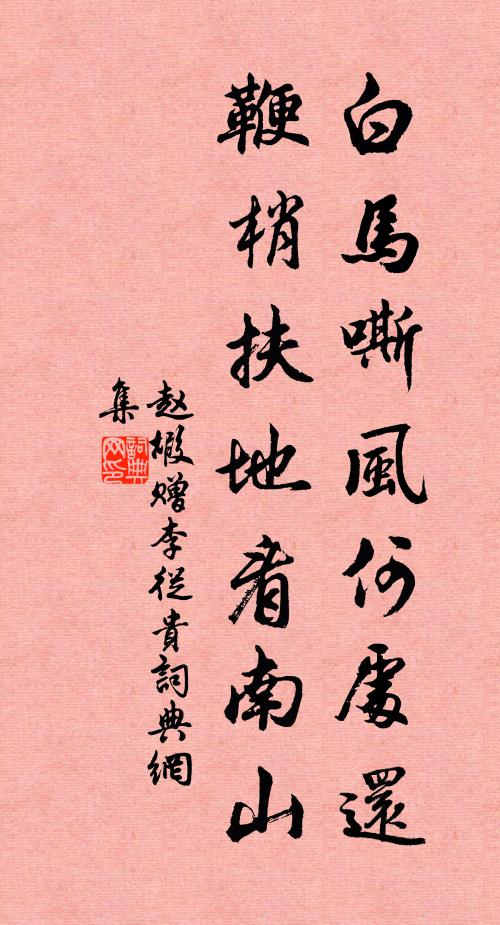 白馬嘶風何處還
鞭梢扶地看南山
赵嘏赠李從貴詞典網
集
詞典网印